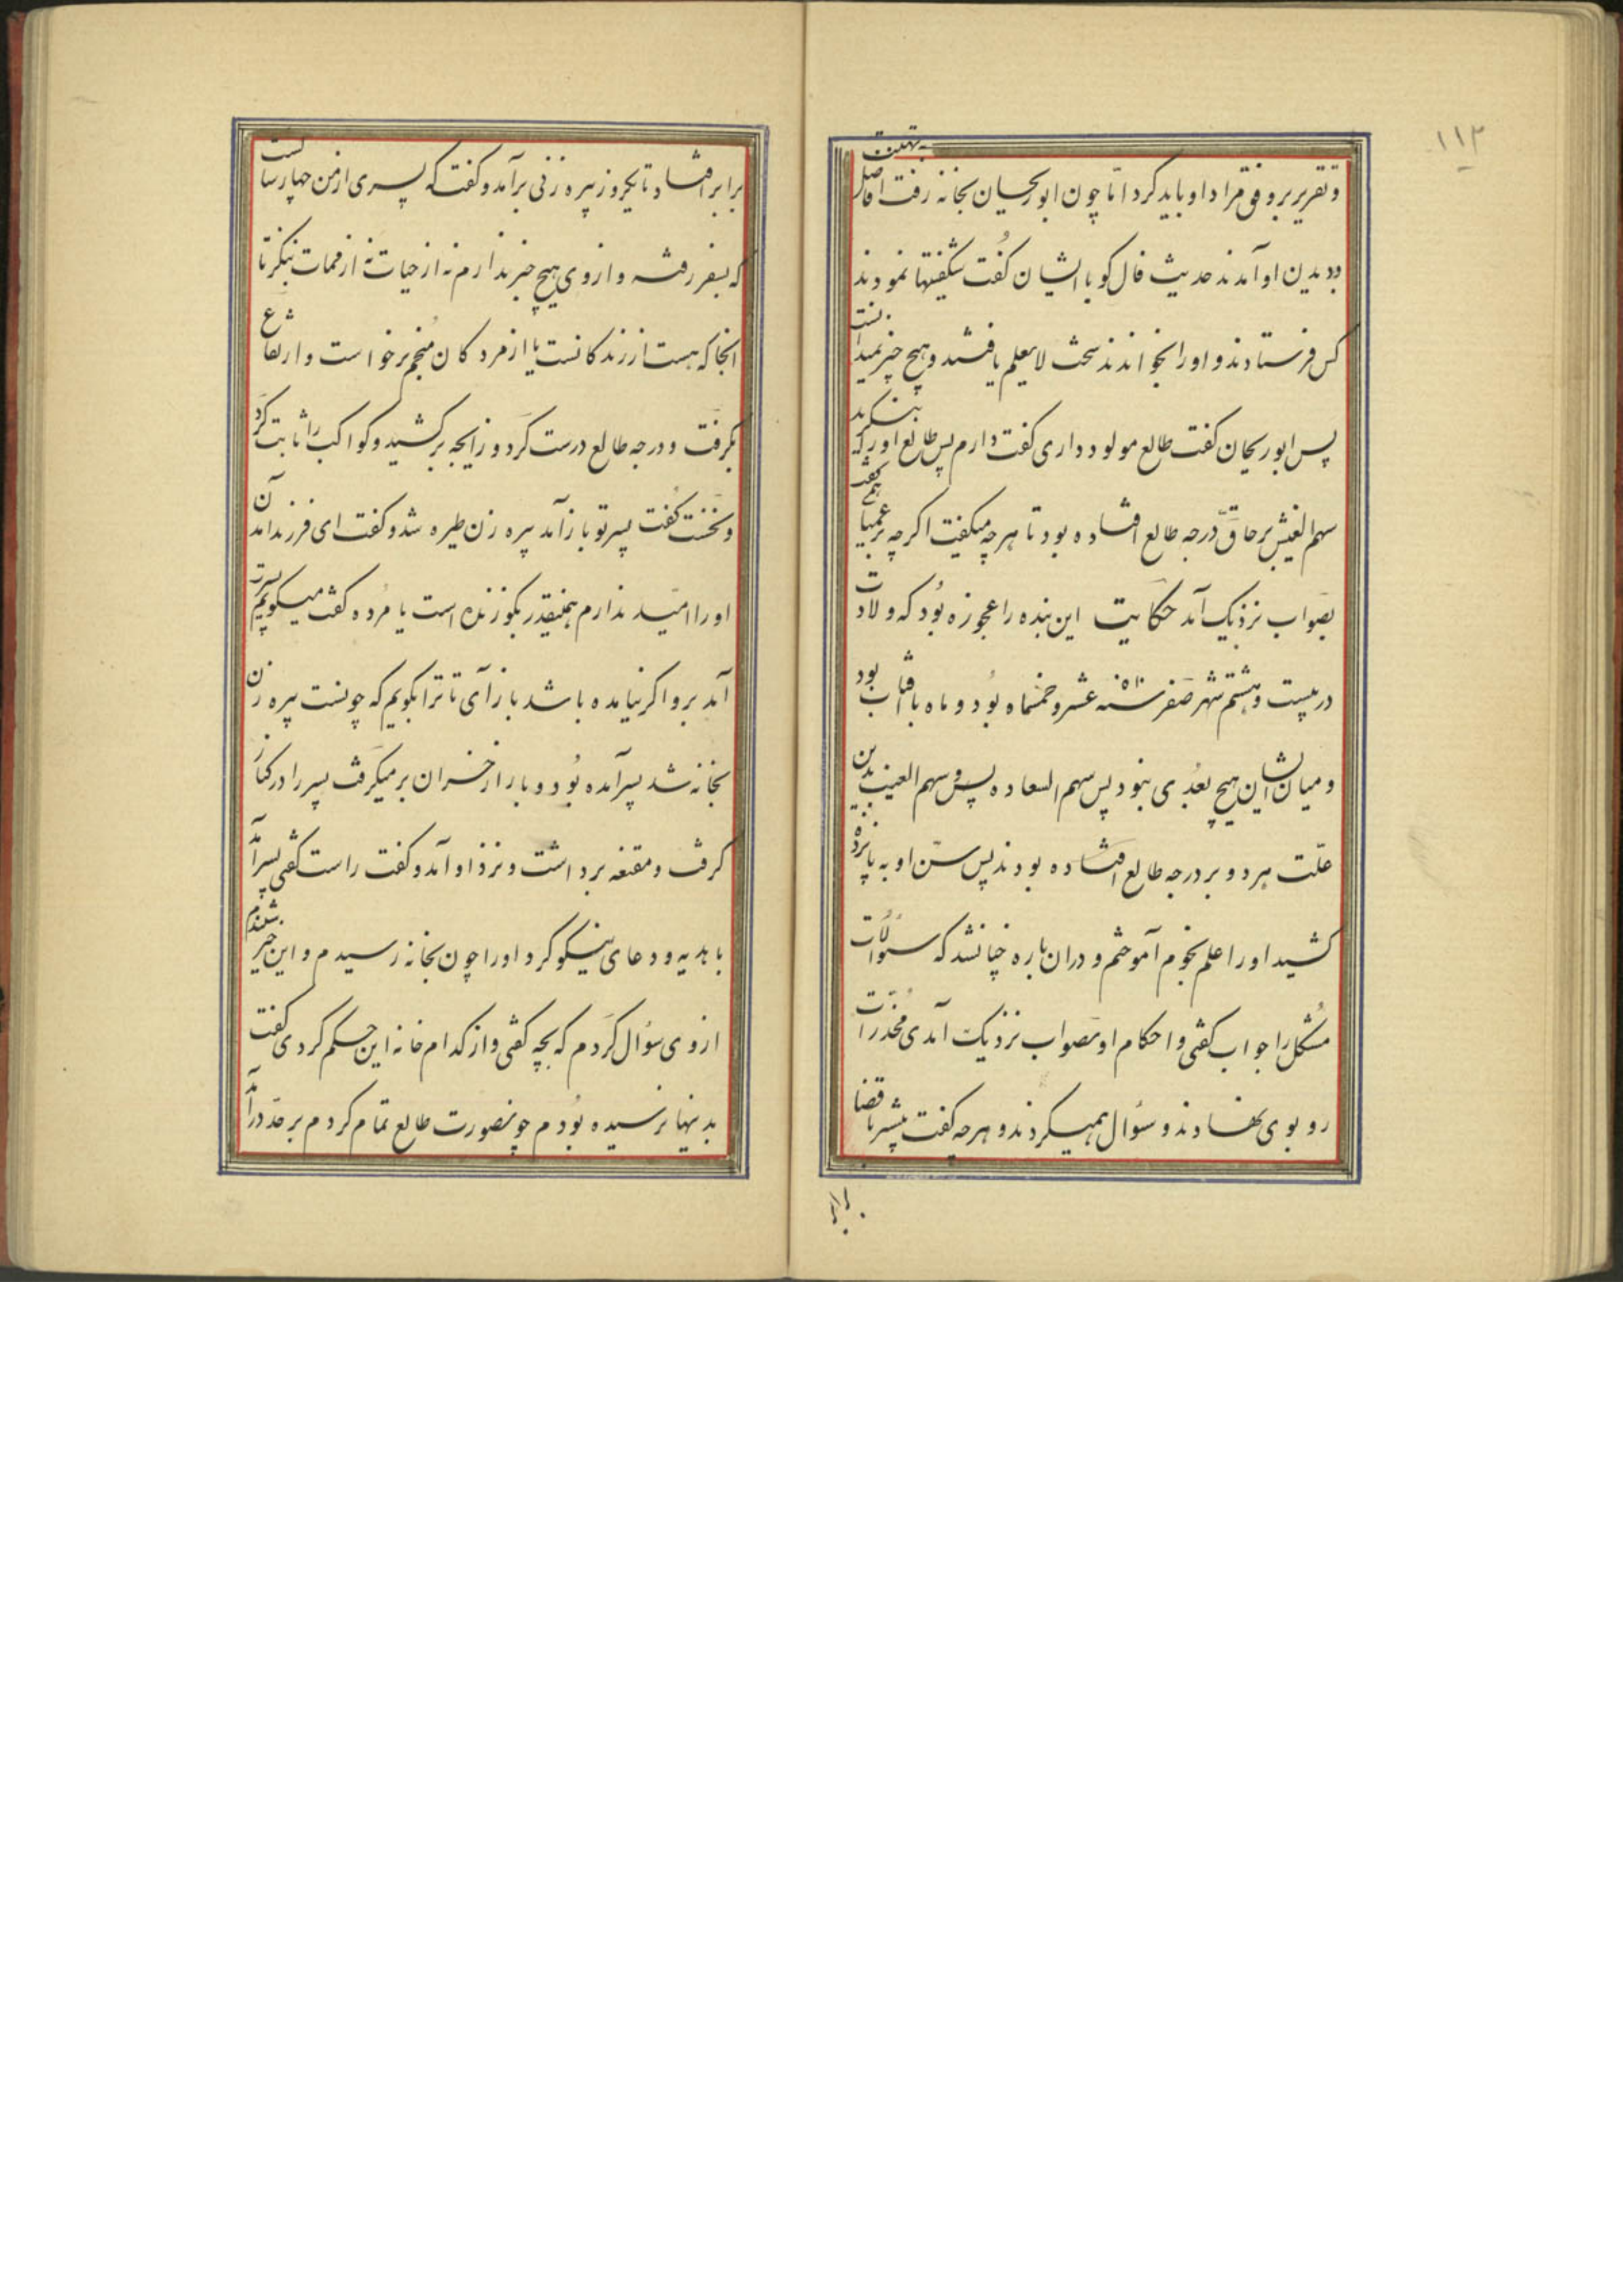 ۱۱۲
و تقریر بر وفق مراد او باید کرد امّا چون ابوریحان بخانه رفت افاضل بتهنیت
بدیدن او آمدند حدیث فال کو با ایشان کفت شکفتیها نمودند
کس فرستادند و او را بخواندند سخت لایعلم یافتند و هیچ چیز نمیدانست
پس ابوریحان کفت طالع مولود داری کفت دارم پس طالع او را که بنکرید
سهم الغیب بر حاقّ درجه طالع افتاده بود تا هرچه میکفت اکرچه بر عمیا همی کفت
بصواب نزدیک آمد حکایت این بنده را عجوزه بود که ولادت
در بیست و هشتم شهر صفر سنه ۵۱۱ عشر و خمسماه بود و ماه با آفتاب بود
و میان ایشان هیچ بعدی نبود پس سهم السعاده پس و سهم الغیب بدین
علّت هر دو بر درجه طالع افتاده بودند پس سنّ او به پانزده
کشید او را علم نجوم آموختم و در آن باره چنان شد که سئوالات
مشکل را جواب کفتی و احکام او بصواب نزدیک آمدی مخدّرات
رو بوی نهادند و سؤال همیکردند و هرچه کفت بیشتر با قضا
برابر
برابر افتاد تا یکروز پیره زنی برآمد و کفت که پسری از من چهار سالست
که بسفر رفته و از وی هیچ خبر ندارم نه از حیات نه از ممات بنکر تا
آنجا که هست از زندکانست یا از مردکان منجم برخواست و ارتفاع
بکرفت و درجه طالع درست کرد و زایجه برکشید و کواکب را ثابت کرد
و نخست کفت پسر تو باز آمد پیره زن طیره شد و کفت ای فرزند آمدن
او را امید ندارم همینقدر بکو زنده است یا مرده کفت میکویم پسرت
آمد برو اکر نیامده باشد باز آی تا ترا بکویم که چونست پیره زن
بخانه شد پسر آمده بود و بار از خران برمیکرفت پسر را در کنار
کرفت و مقنعه برداشت و نزد او آمد و کفت راست کفتی پسر آمد
با هدیه و دعای نیکو کرد او را چون بخانه رسیدم و این خبر بشنیدم
از وی سؤال کردم که بچه کفتی و از کدام خانه این حکم کردی کفت
بدینها نرسیده بودم چو نصورت طالع تمام کردم بر خد درآمد